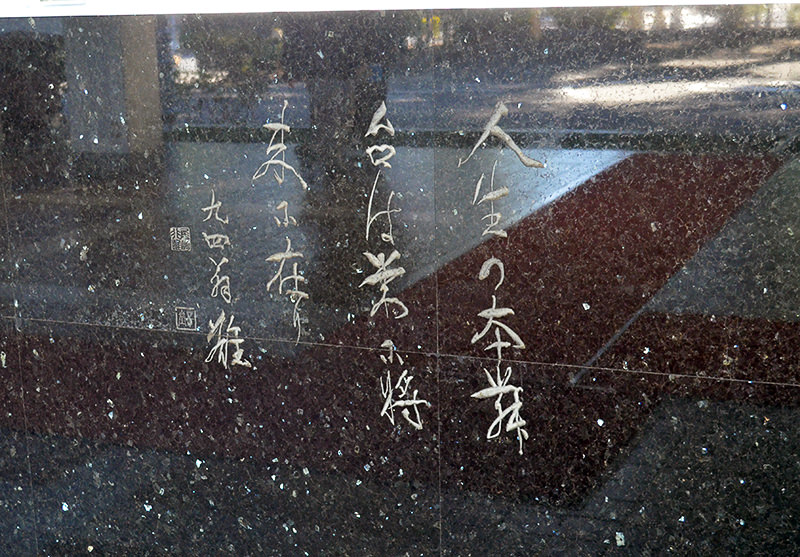 人生の本舞
台は常に将
来に在り
九四翁 雄